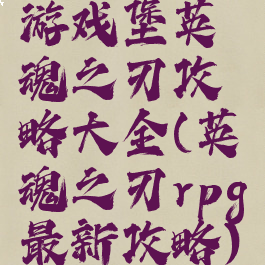 游戏堡英
魂之刃攻
略大全(英
魂之刃rpg
最新攻略)